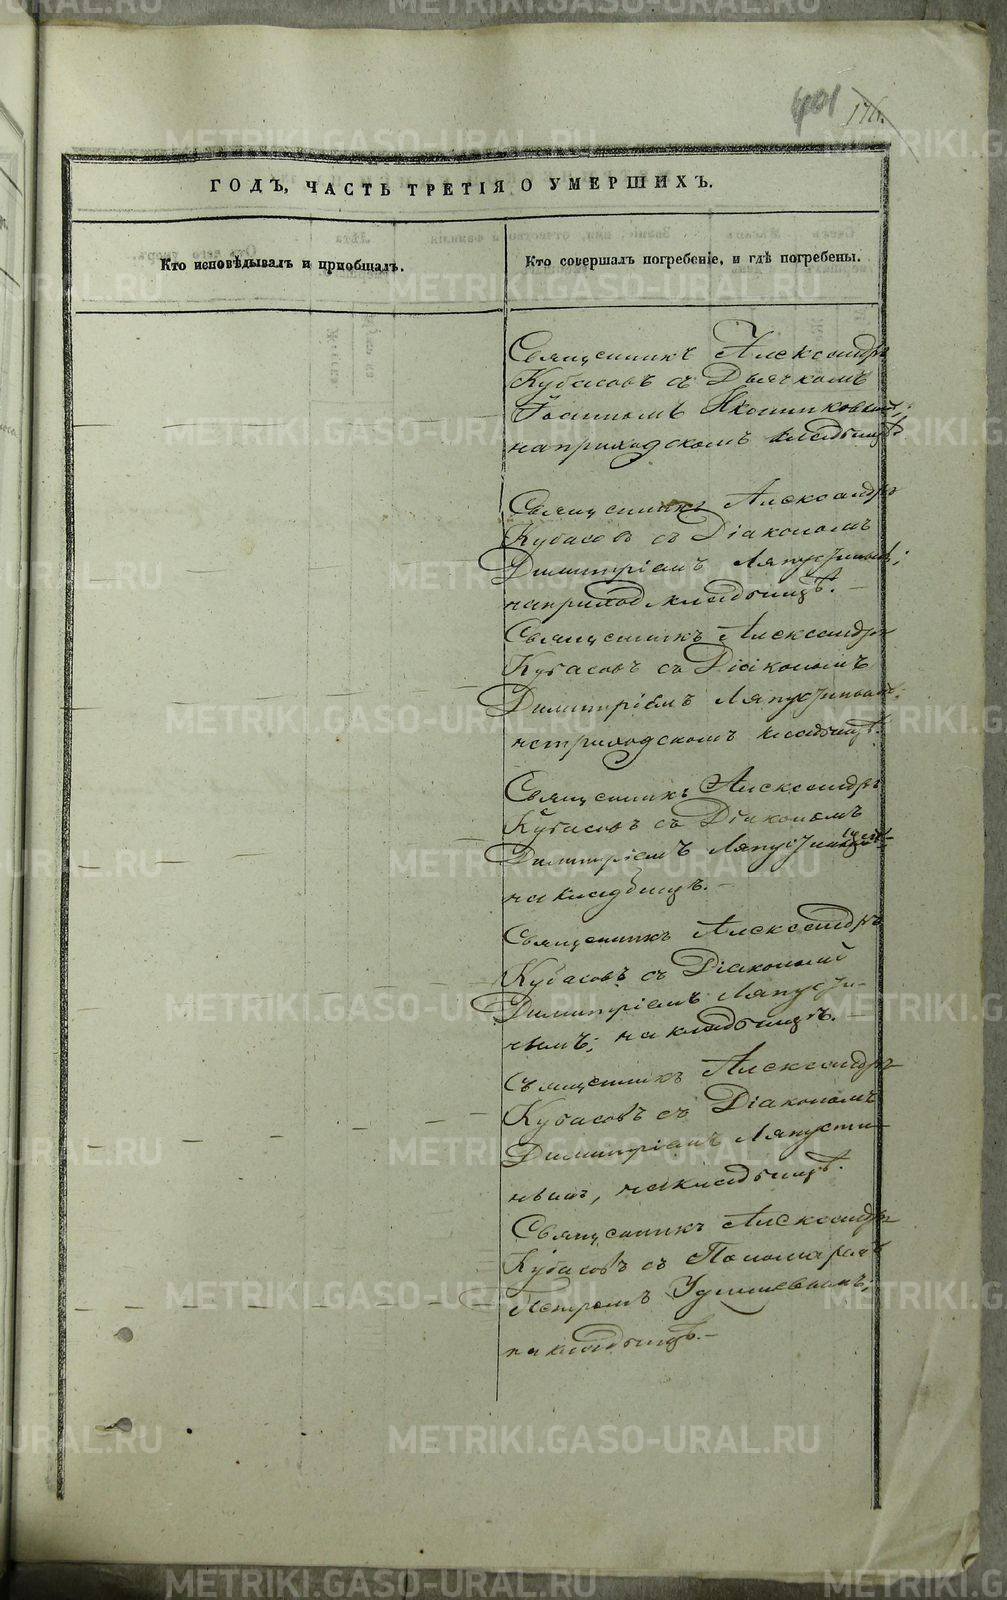 401 176.
ГОДЪ, ЧАСТЬ ТРЕТІЯ О УМЕРШИХЪ.
Кто исповѣдывалъ и пріобщалъ.
Кто совершалъ погребеніе, и гдѣ погребены.
Священникъ Александръ
Кубасовъ съ Дьячкомъ
Іоанномъ
на приходскомъ кладбищѣ.
Священникъ Александръ
Кубасовъ съ Діакономъ
Димитріемъ Ляпустинымъ;
на приход кладбищѣ. —
Священникъ Александръ
Кубасовъ съ Діакономъ
Димитріемъ Ляпустинымъ;
на приходскомъ кладбищѣ.
Священникъ Александръ
Кубасовъ съ Діакономъ
Димитріемъ Ляпустинымъ
на кладбищѣ. —
Священникъ Александръ
Кубасовъ съ Діакономъ
Димитріемъ Ляпусти-
нымъ; на кладбищѣ.
Священникъ Александръ
Кубасовъ съ Діакономъ
Димитріемъ Ляпусти-
нымъ, на кладбищѣ.
Священникъ Александръ
Кубасовъ съ Пономаремъ
Петромъ
на кладбищѣ. —
METRIKI.GASO-URAL.RU